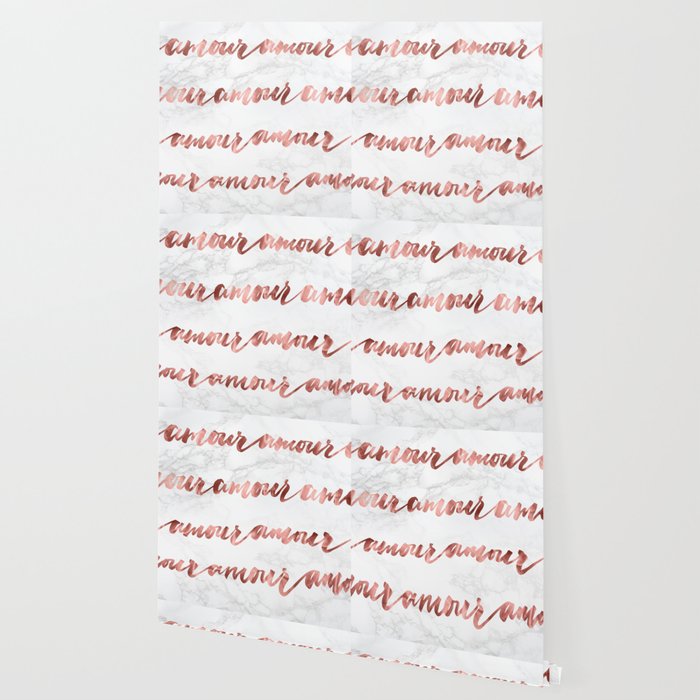 amour amour amour amour
our amour am our amour am
amour amour amour amour
our amour am our amour am
amour amour amour amour
our amour am our amour am
amour amour amour amour
our amour am our amour am
amour amour amour amour
our amour am our amour am
amour amour amour amour
our amour am our amour am